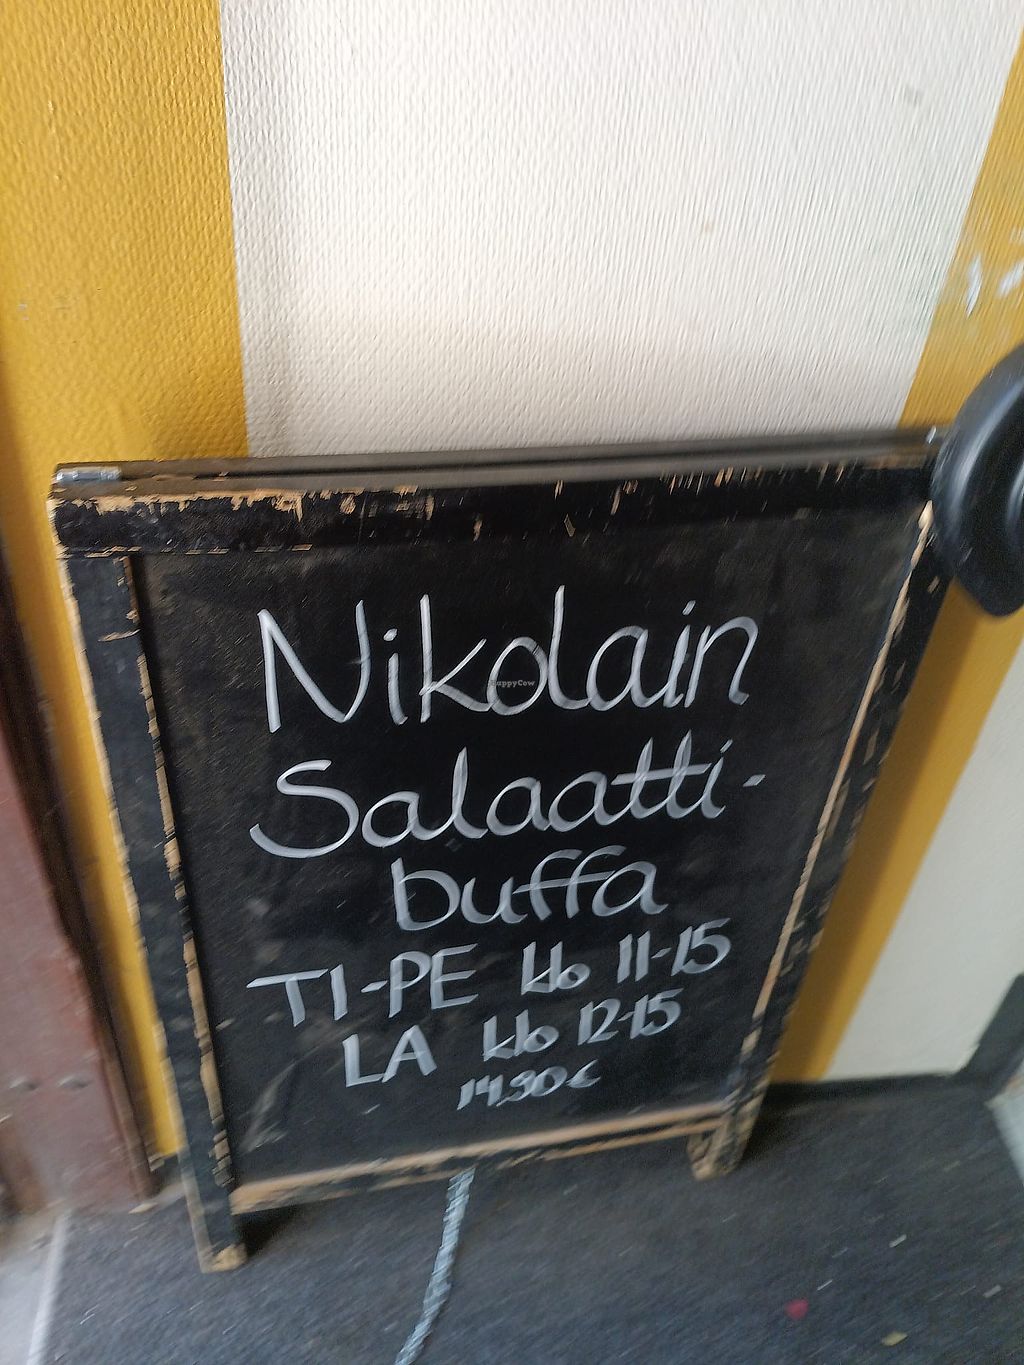 Nikolain
HappyCow
Salaatti-
buffa
TI-PE klo 11-15
LA klo 12-15
14.90€